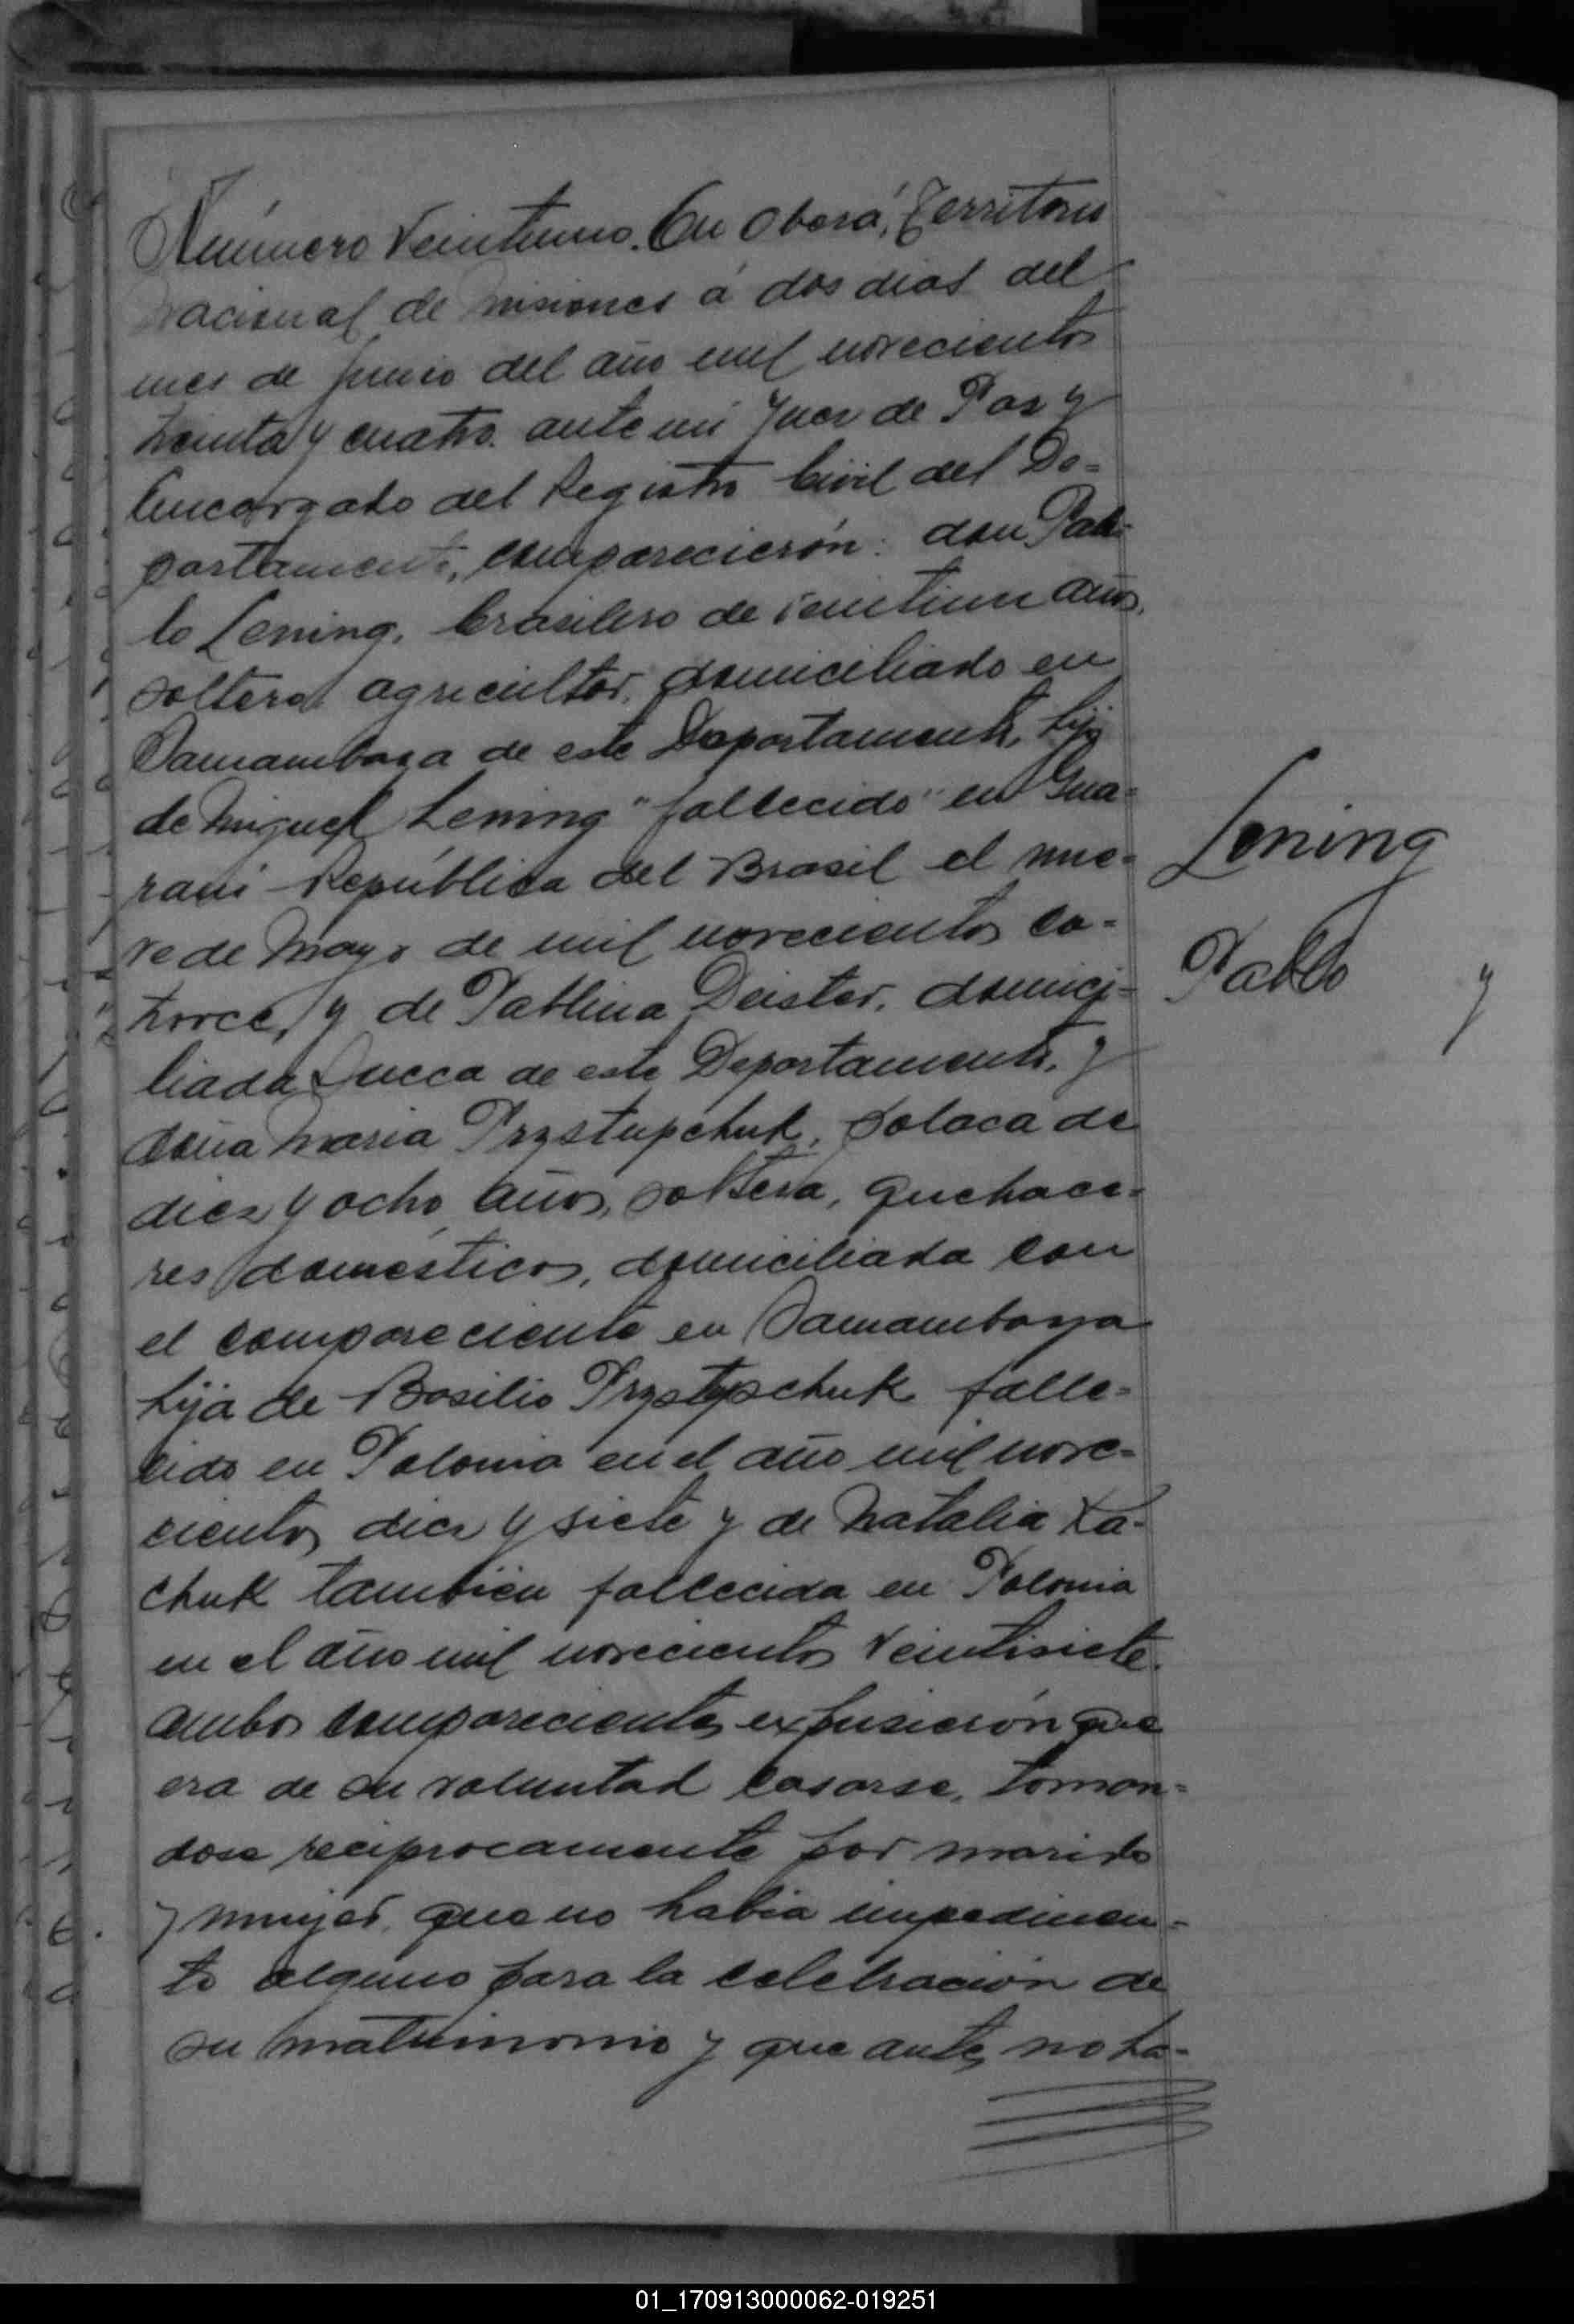 Número Veintiuno. En Oberá, Territorio
Nacional de Misiones á dos dias del
mes de Junio del año mil novecientos
treinta y cuatro. ante mi Juez de Paz y
Encargado del Registro Civil del De=
partamento, comparecierón: don Pab=
lo Lening, brasilero de veintiun años,
soltero agricultor, domiciliado en
Samambaya de este Departamento, hijo
de Miguel Lening "fallecido" en Gua=
rani República del Brasil el nue=
ve de Mayo de mil novecientos ca=
torce, y de Pablina Deister, domici=
liada Yucca de este Departamento, y
doña Maria Prystupchuk, polaca de
diez y ocho años, soltera, quehace=
res domésticos, domiciliada con
el compareciente en Samambaya
hija de Basilio Prystupchuk falle=
cido en Polonia en el año mil nove=
cientos diez y siete y de Natalia
chuk también fallecida en Polonia
en el año mil novecientos veintisiete.
Ambos comparecientes expusierón que
era de su voluntad casarse, toman=
dose reciprocamente por marido
y mujer, que no habia impedimen=
to alguno para la celebración de
su matrimonio y que antes no ha=
Lening
Pablo y
01_170913000062-019251